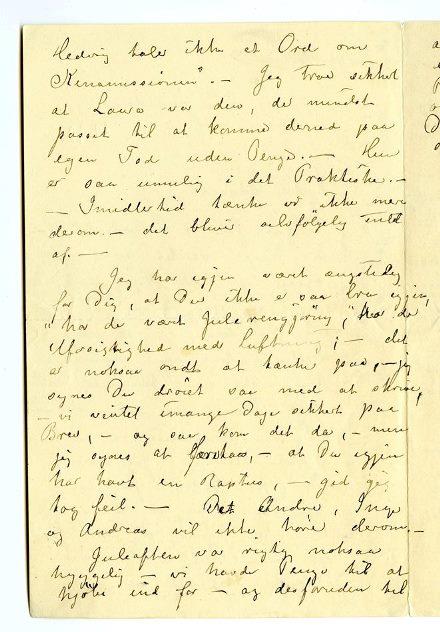 Hedvig taler ikke et Ord om
Kinamissionen". — Jeg tror sikket
at Laura var den, der mindst
passet til at komme derned paa
egen Tod uden Penge. — Hun
er saa umulig i det Praktiske. —
— Imidlertid tænke vi ikke mere
derom. — det bliver selvfølgelig intet
af. —
Jeg har igjen været ængstelig
for Dig, at Du ikke er saa bra igjen,
"har det været Julerengjøring", har
Uforsigtighed med Luftning; — det
er noksaa ondt at tænke paa, — jeg
synes Du drøiet saa med at skrive,
— vi ventet i mange Dage sikket paa
Brev, — og saa kom det da, — men
jeg synes at — at Du igjen
har havt en Raptus, — gid jeg
tog feil. — Det Andre, Inga
og Andreas vil ikke høre derom. —
Juleaften var rigtig noksaa
hyggelig — vi havde Penge til at
kjøbe ind for — og desforuden til